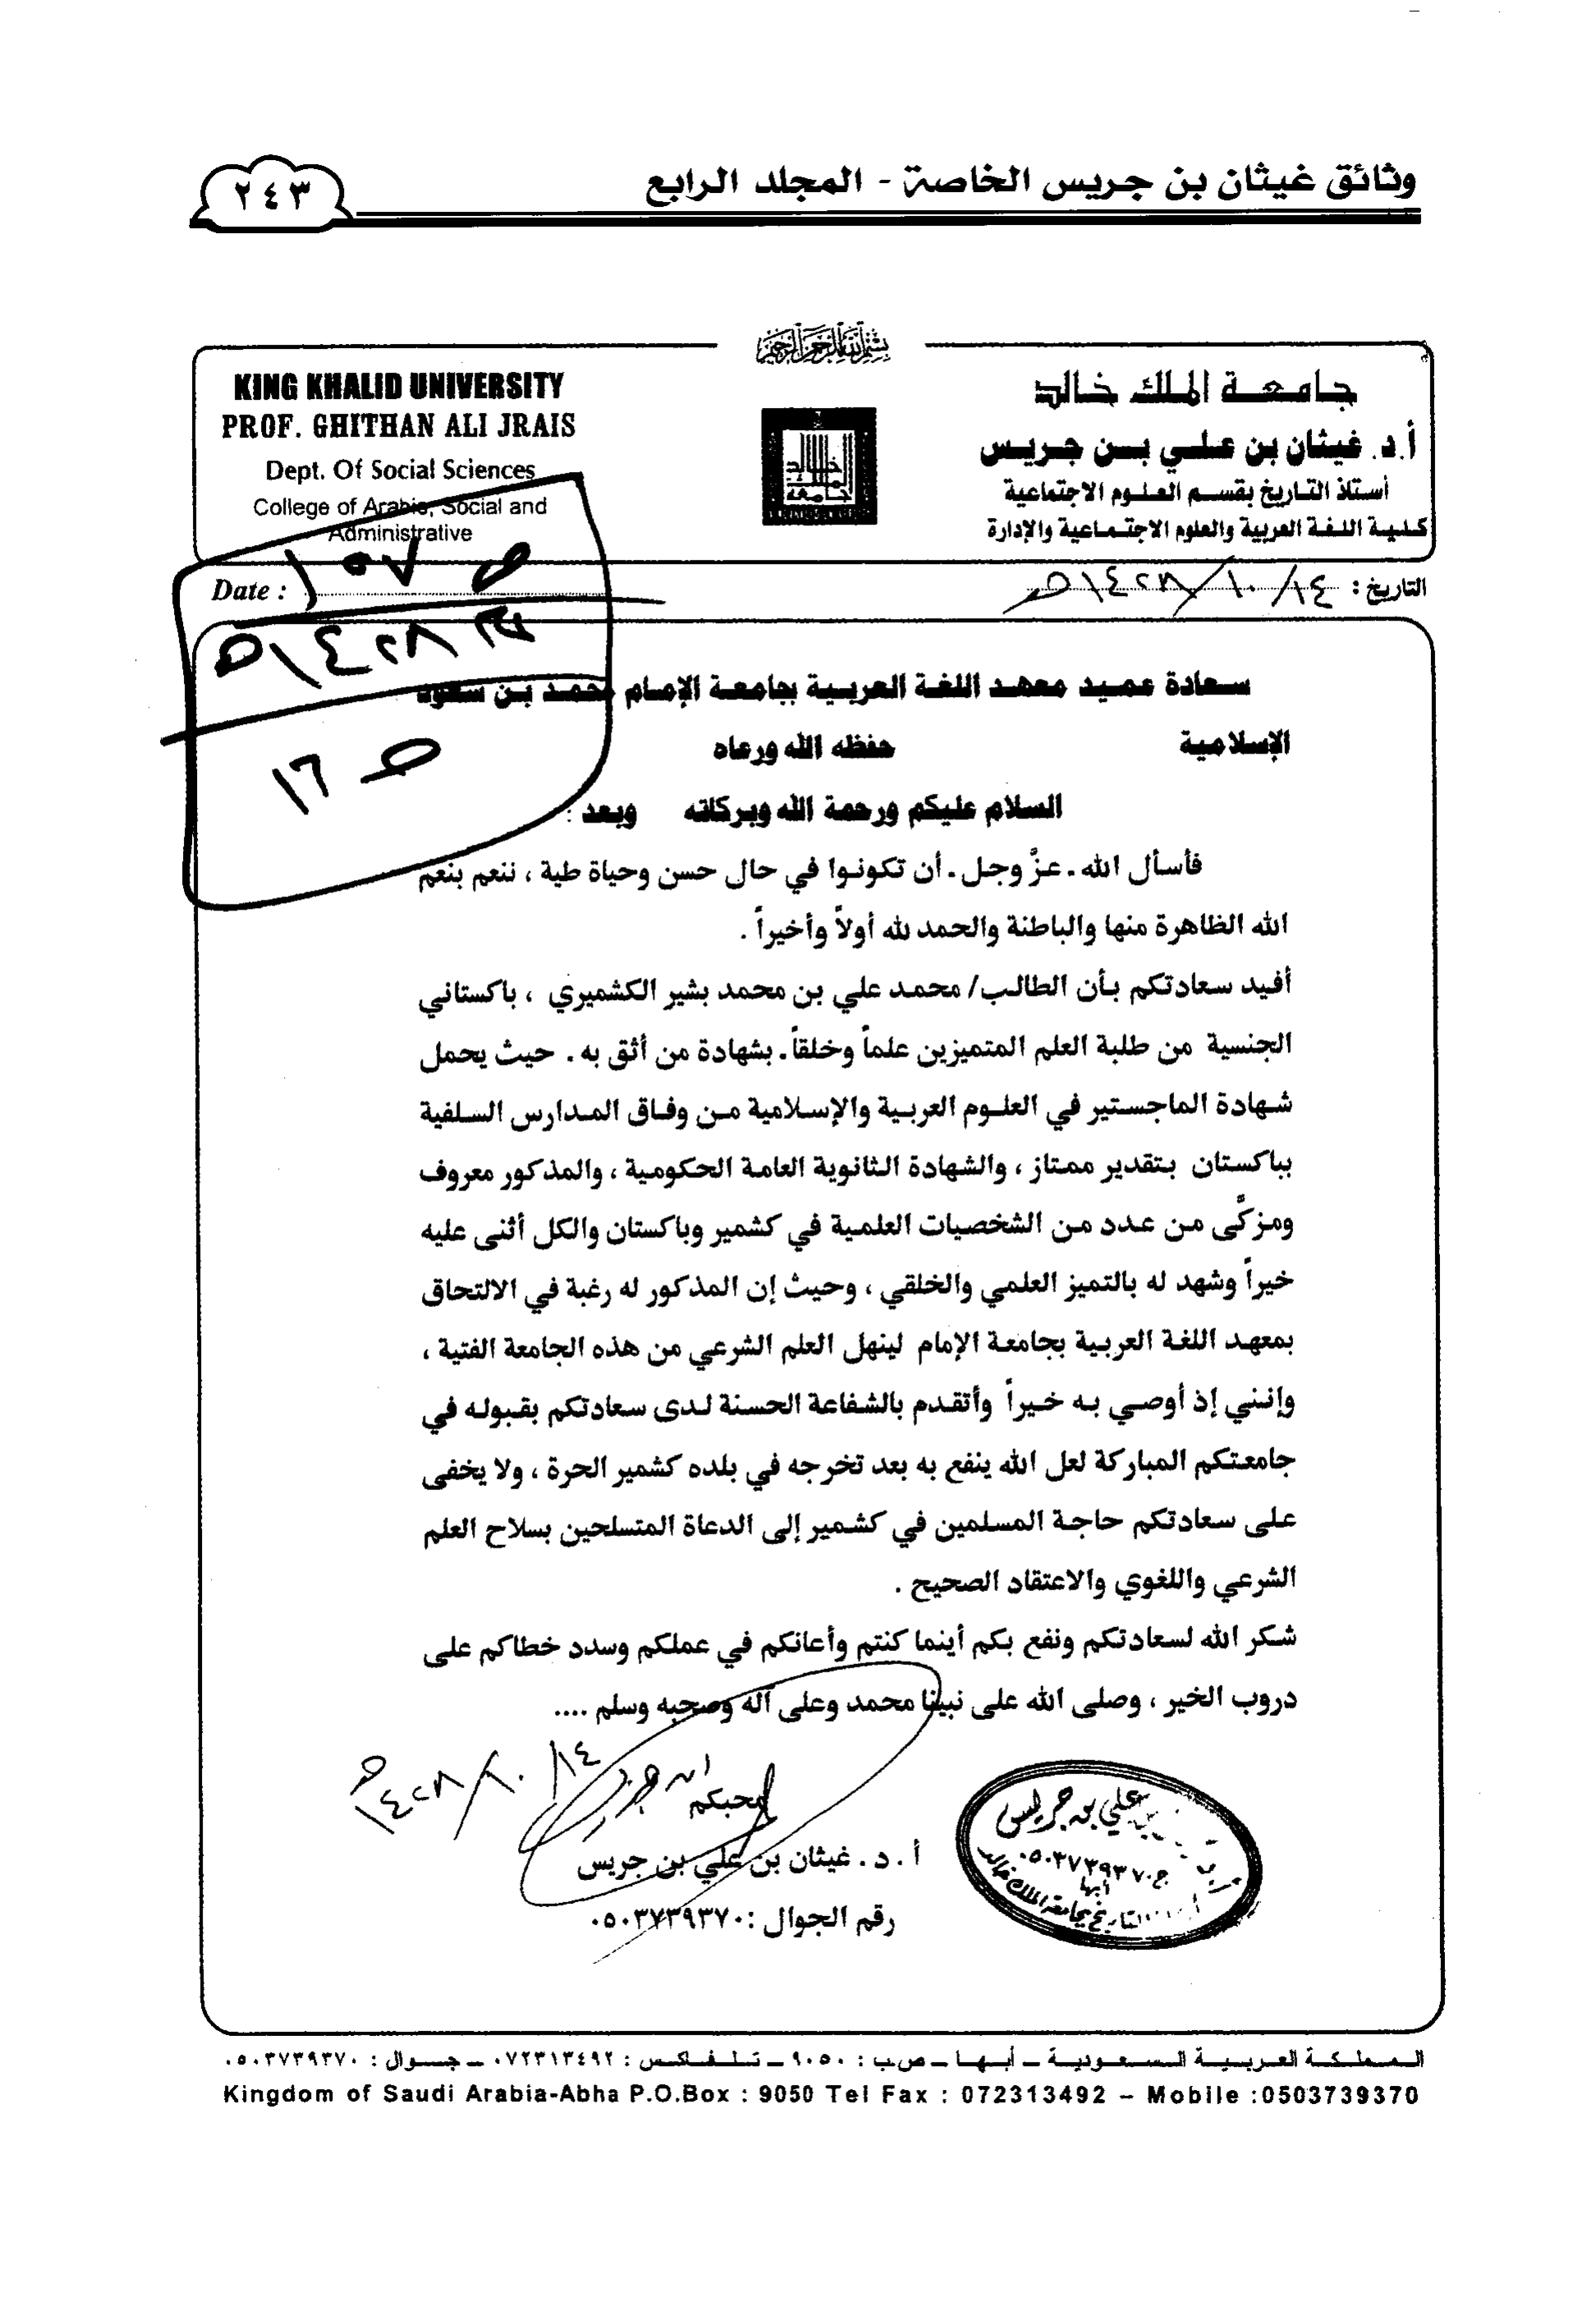 وثائق غيثان بن جريس الخاصة - المجلد الرابع
٢٤٣
بسم الله الرحمن الرحيم
جامعة الملك خالد
أ.د. غيثان بن علي بن جريس
أستاذ التاريخ بقسم العلوم الاجتماعية
كلية اللغة العربية والعلوم الاجتماعية والإدارة
جامعة الملك خالد
KING KHALID UNIVERSITY
PROF. GHITHAN ALI JRAIS
Dept. Of Social Sciences
College of Arabic, Social and
Administrative
التاريخ : ١٤/١٠/١٤٢٨هـ
Date :
ص ١٥٧
١٤٢٨هـ
ص ١٦
سعادة عميد معهد اللغة العربية بجامعة الإمام محمد بن سعود
الإسلامية حفظه الله ورعاه
السلام عليكم ورحمة الله وبركاته وبعد :
فأسأل الله . عزَّ وجل . أن تكونوا في حال حسن وحياة طية ، ننعم بنعم
الله الظاهرة منها والباطنة والحمد لله أولاً وأخيراً .
أفيد سعادتكم بأن الطالب/ محمد علي بن محمد بشير الكشميري ، باكستاني
الجنسية من طلبة العلم المتميزين علماً وخلقاً . بشهادة من أثق به . حيث يحمل
شهادة الماجستير في العلوم العربية والإسلامية من وفاق المدارس السلفية
بباكستان بتقدير ممتاز ، والشهادة الثانوية العامة الحكومية ، والمذكور معروف
ومزكَّى من عدد من الشخصيات العلمية في كشمير وباكستان والكل أثنى عليه
خيراً وشهد له بالتميز العلمي والخلقي ، وحيث إن المذكور له رغبة في الالتحاق
بمعهد اللغة العربية بجامعة الإمام لينهل العلم الشرعي من هذه الجامعة الفتية ،
وإنني إذ أوصي به خيراً وأتقدم بالشفاعة الحسنة لدى سعادتكم بقبوله في
جامعتكم المباركة لعل الله ينفع به بعد تخرجه في بلده كشمير الحرة ، ولا يخفى
على سعادتكم حاجة المسلمين في كشمير إلى الدعاة المتسلحين بسلاح العلم
الشرعي واللغوي والاعتقاد الصحيح .
شكر الله لسعادتكم ونفع بكم أينما كنتم وأعانكم في عملكم وسدد خطاكم على
دروب الخير ، وصلى الله على نبينا محمد وعلى آله وصحبه وسلم ....
محبكم
١٤/١٠/١٤٢٨هـ
أ . د . غيثان بن علي بن جريس
رقم الجوال :٠٥٠٣٧٣٩٣٧٠
علي بن جريس
ج ٠٥٠٣٧٣٩٣٧٠
أبها
التاريخ بجامعة الملك خالد
المملكة العربية السعودية – أبها – ص.ب : ٩٠٥٠ – تلفاكس : ٠٧٢٣١٣٤٩٢ – جوال : ٠٥٠٣٧٣٩٣٧٠
Kingdom of Saudi Arabia-Abha P.O.Box : 9050 Tel Fax : 072313492 – Mobile :0503739370